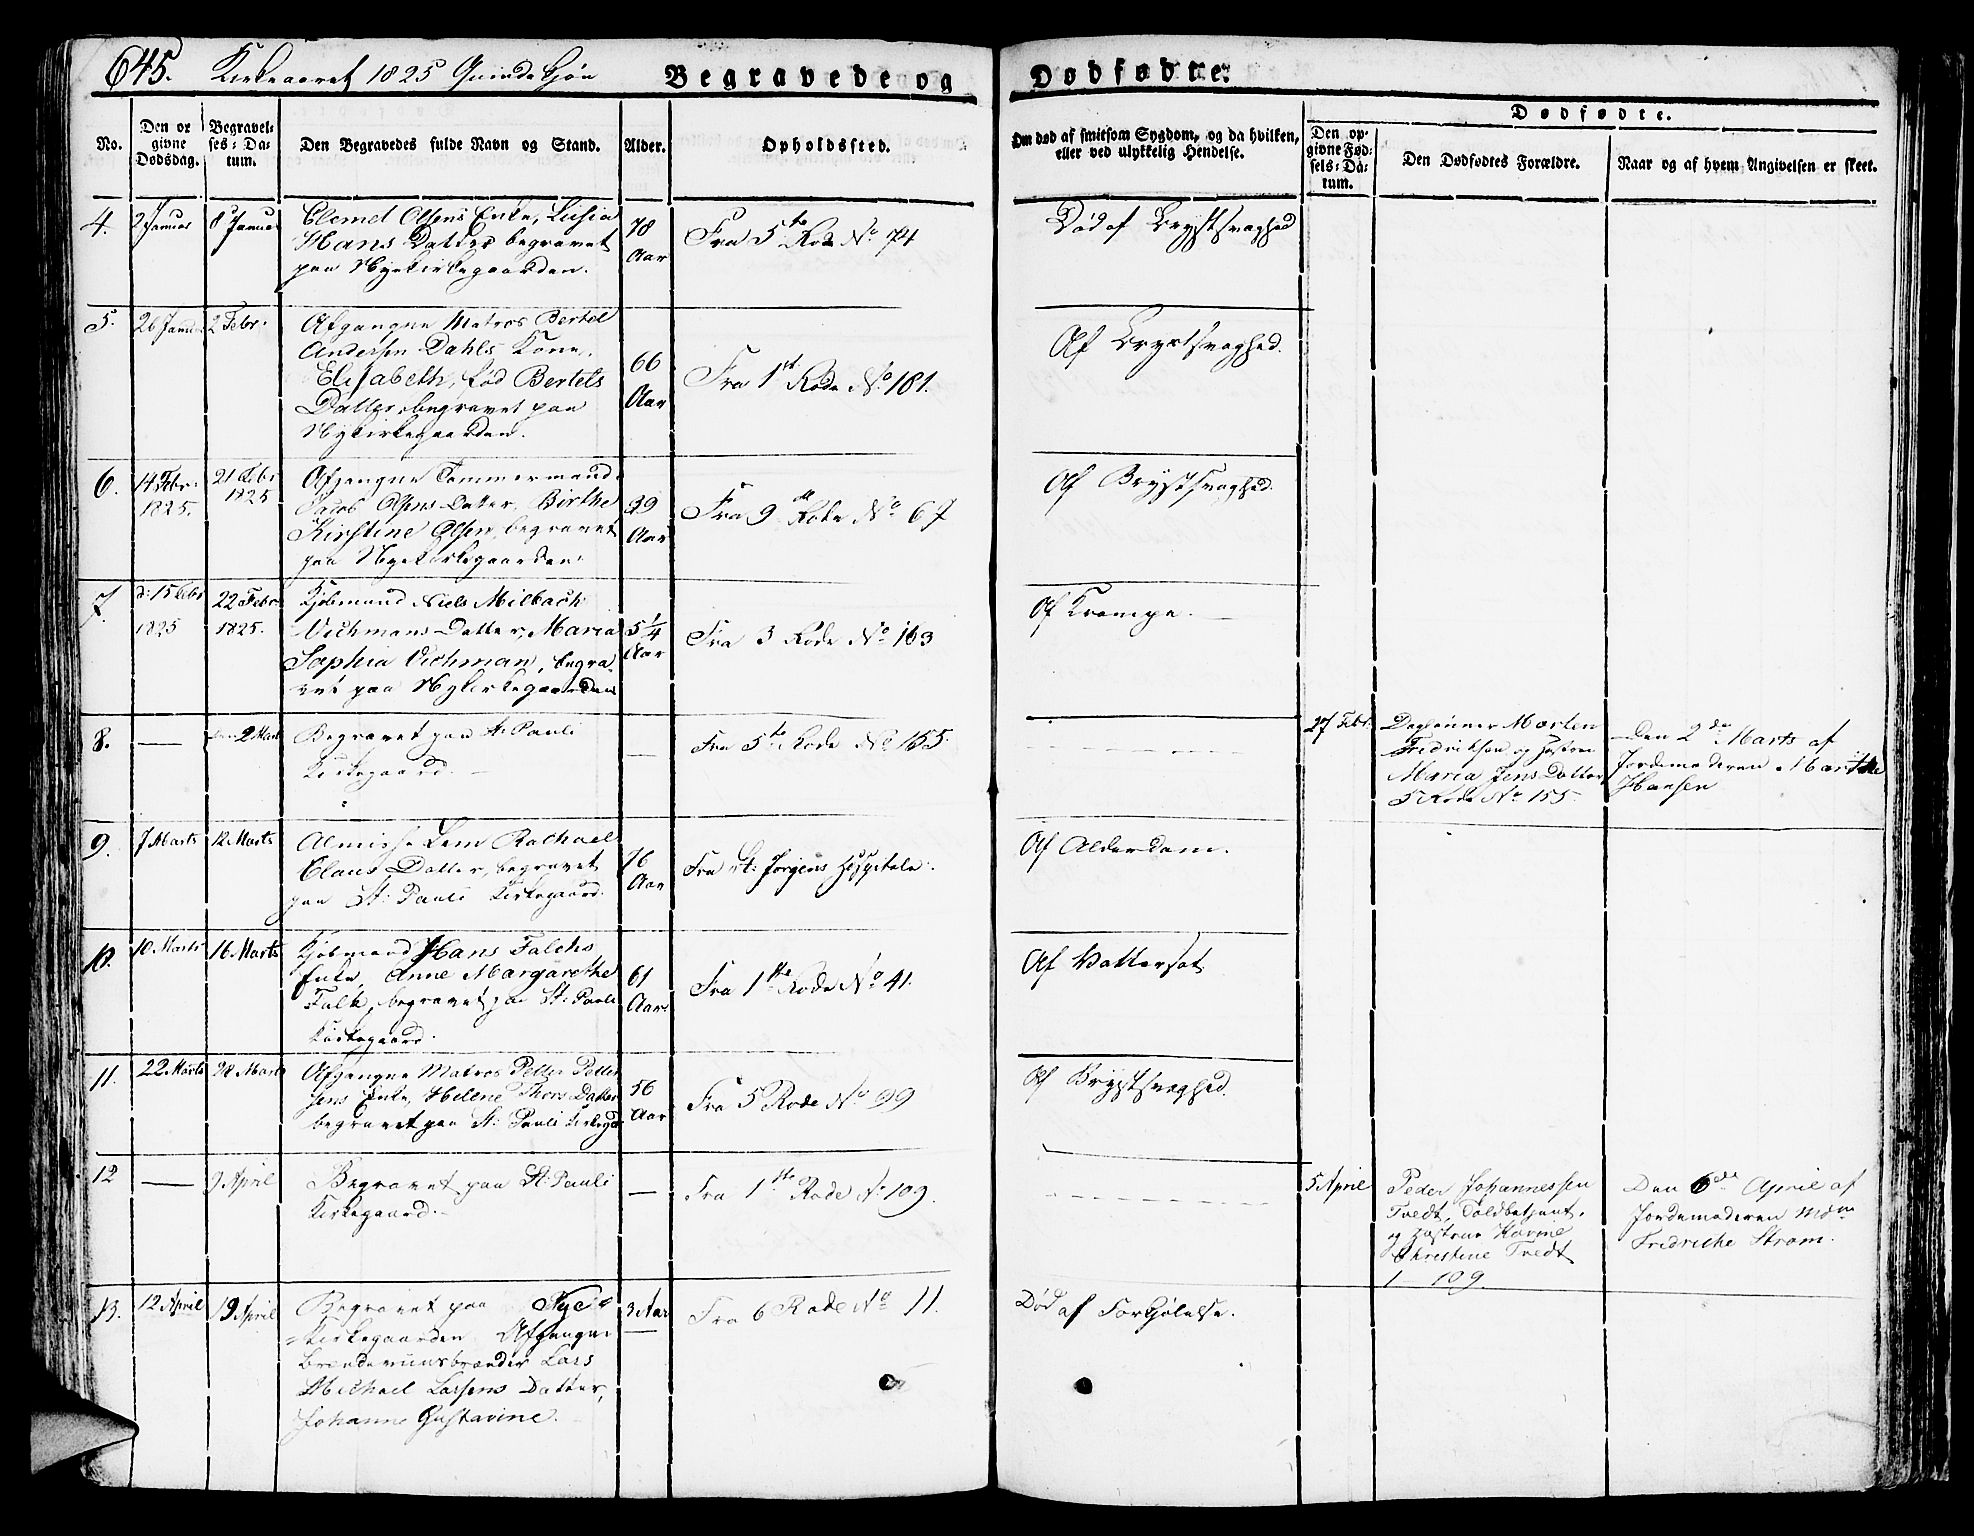 645. Kirkeaaret 1825 Qvindekjøn
Begravede og Dødfødte.
No.
Den opgivne Dødsdag.
Begravelses-Datum.
Den Begravedes fulde Navn og Stand.
Alder.
Opholdssted.
Om død af smitsom Sygdom, og da hvilken,
eller ved ulykkelig Hendelse.
Dødfødte.
Den opgivne Fødsels-Datum.
Den Dødfødtes Forældre.
Naar og af hvem Angivelsen er skeet.
4. 2 Januar 8 Januar
Clemet Olsens Enke, Lusia
Hans Datter begravet
paa Nyekirkegaarden.
78 Aar
Fra 5te Rode No. 74
Død af Brystsvaghed
5. 26 Januar 2 Febr:
Afgangne Matros Bertel
Andersen Dahls Kone,
Elisabeth, fød Bertels
Datter, begravet paa
Nykirkegaarden.
66 Aar
Fra 1st Rode No. 181.
Af Brystsvaghed.
6. 14 Febr: 1825. 21 Febr 1825
Afgangne Tømmermand
Jacob Olsens Datter, Birthe
Kirstine Olsen, begravet
paa Nyekirkegaarden.
39 Aar
Fra 9 Rode No 67
Af Brystsvaghed.
7. d: 15 Febr 1825 22 Febr 1825.
Kjøbmand Niels Milbach
Vichmans Datter, Maria
Sophia Vichman, begra-
vet paa Nykirkegaarden
5 1/4 Aar
Fra 3 Rode No 163
Af Krampe.
8. — 2 Marts
Begravet paa St Pauli
Kirkegaard. —
—
Fra 5te Rode No 155.
27 Febr.
Dagleinner Morten
Fredriksen og Hustrue
Maria Jens Datter
5 Rode No 155.
Den 2den Marts af
Jordemoderen Marthe
Hansen
9. 7 Marts 12 Marts
Almisse Lem Rachael
Claus Datter, begravet
paa St: Pauli Kirkegaard.
76 Aar
Fra St: Jørgens Hospitale.
Af Alderdom.
10. 10 Marts 16 Marts
Kjøbmand Hans Falchs
Enke, Anne Margarethe
Falk, begravet paa St: Pauli
Kirkegaard.
61 Aar
Fra 1ste Rode No 41.
Af Vattersot
11. 22 Marts 28 Marts
Afgangne Matros Petter Petter
sens Enke, Helene Thors Datter
begravet paa St: Pauli Kirkegd
56 Aar
Fra 5 Rode No 99
Af Brystsvaghed.
12 — 9 April
Begravet paa St: Pauli
Kirkegaard. —
—
Fra 1ste Rode No 109.
5 April
Peder Johannessen
Tvedt, Toldbetjent,
og Hustrue Karine
Christine Tvedt
1 — 109.
Den 6de April af
Jordemoderen Mdm
Fredriche Strøm.
13. 12 April 19 April
Begravet paa Nye-
-kirkegaarden Afgangne
Brændeviinsbrænder Lars
Michael Larsens Datter,
Johanne Gustavine.
3 Aar
Fra 6 Rode No 11.
Død af Forkjølelse.